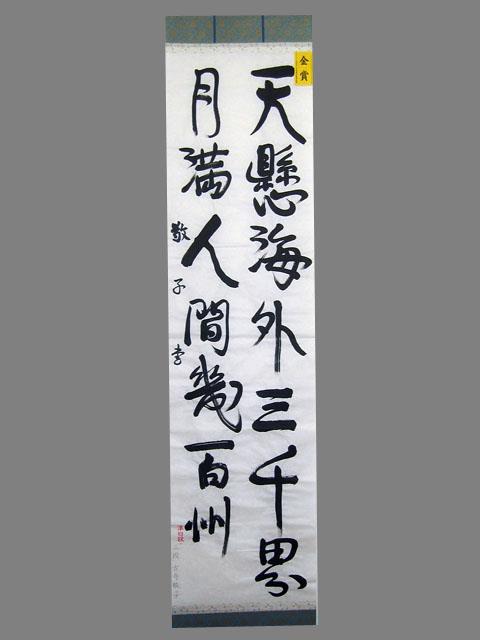 金賞
天懸海外三千界
月満人間幾百州
敬子書